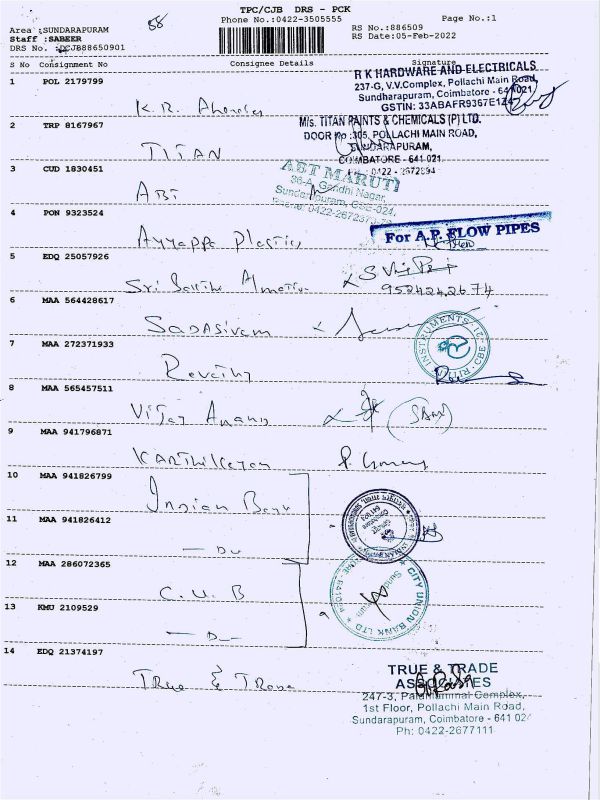 TPC/CJB DRS - PCK
Phone No.:0422-3505555
Page No.:1
88
Area :SUNDARAPURAM
Staff :SABEER
DRS No. :DCJB88650901
RS No.:886509
RS Date:05-Feb-2022
S No Consignment No Consignee Details Signature
R K HARDWARE AND ELECTRICALS
237-G, V.V.Complex, Pollachi Main Road,
Sundharapuram, Coimbatore - 641021
GSTIN: 33ABAFR9367E1Z4
1 POL 2179799
K.R.
M/s. TITAN PAINTS & CHEMICALS (P) LTD.
DOOR No :305, POLLACHI MAIN ROAD,
SUNDARAPURAM,
COIMBATORE - 641 021.
2 TRP 8167967
TITAN
3 CUD 1830451
ABT
ABT MARUTI
36-A, Gandhi Nagar,
4 PON 9323524
Ayyappa Plastic
For A.P. FLOW PIPES
5 EDQ 25057926
Sri Sakthi
9524242674
6 MAA 564428617
Sadasivam
7 MAA 272371933
Revathy
INSTRUMENTS
CBE - 21
8 MAA 565457511
Vijay Anand
9 MAA 941796871
Karthikeyan
10 MAA 941826799
Indian Bank
11 MAA 941826412
— Do
12 MAA 286072365
C.U.B
CITY UNION BANK LTD
13 KMU 2109529
— D —
14 EDQ 21374197
True & Trade
TRUE & TRADE
ASSOCIATES
247-3, Palaniammal Complex,
1st Floor, Pollachi Main Road,
Sundarapuram, Coimbatore - 641 024
Ph: 0422-2677111